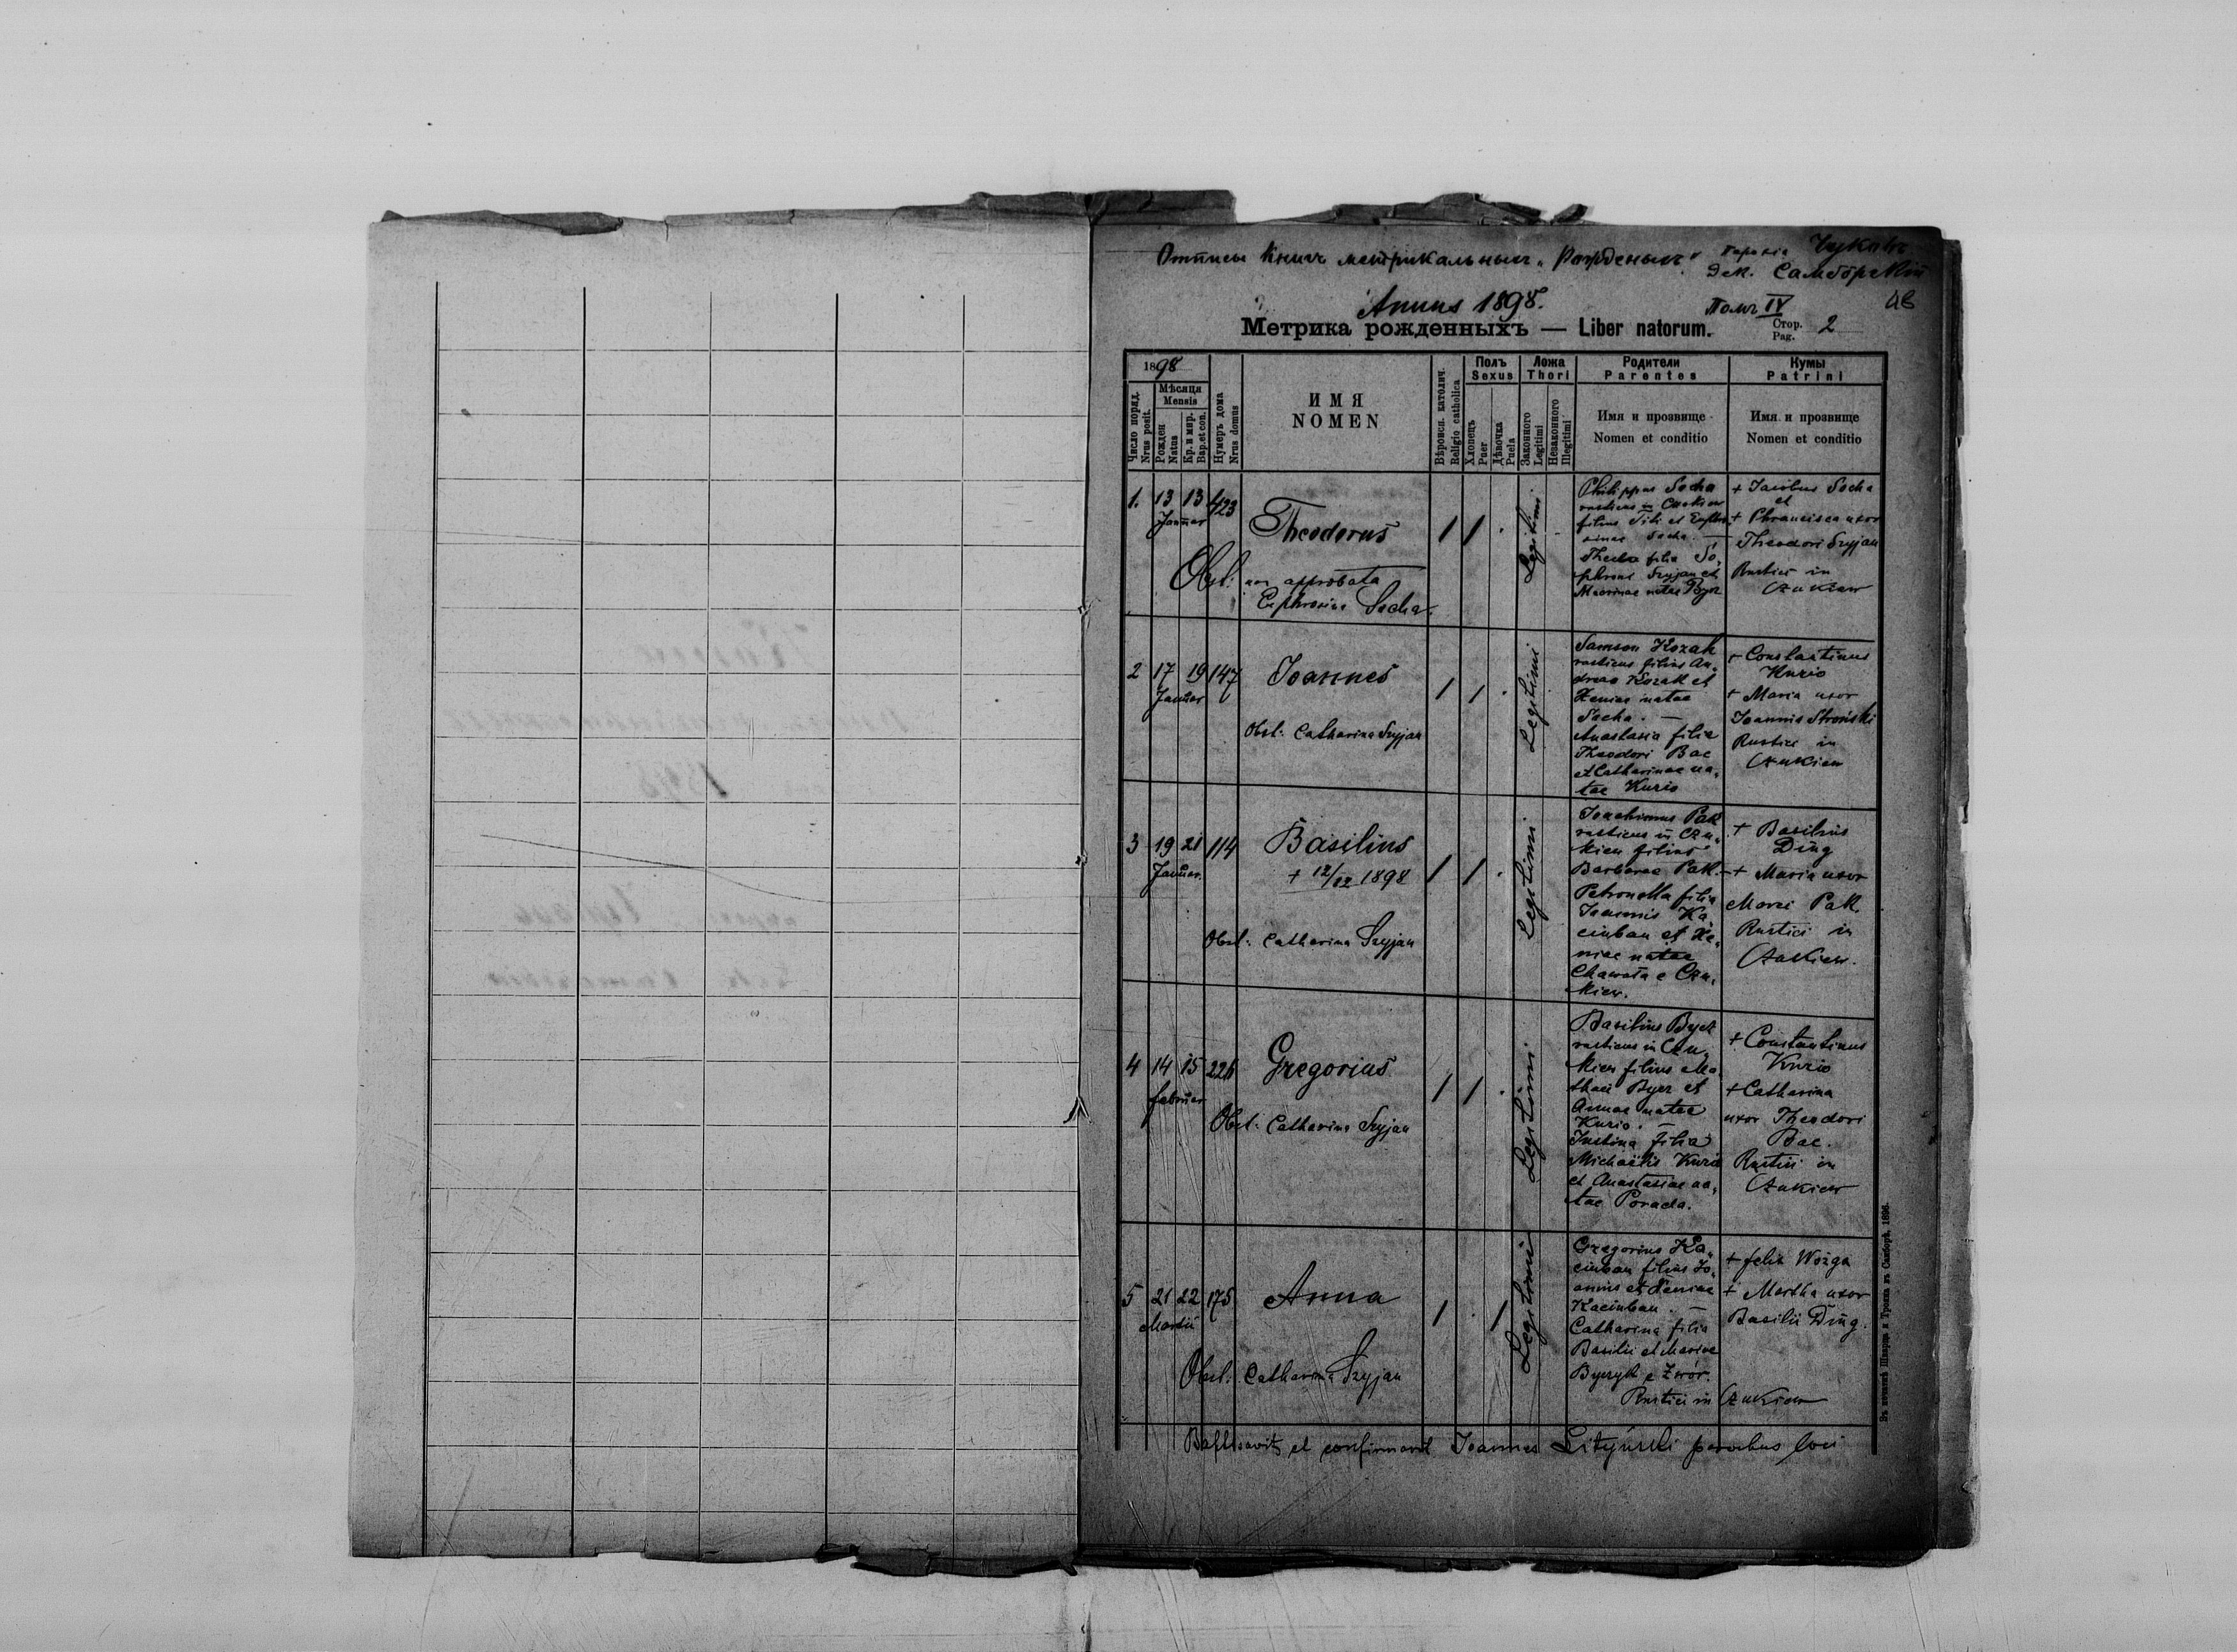 Отписъ книгъ метрикальныхъ „Рожденыхъ" Парохія Чуковъ
Дек. Самборскій
Annus 1898. Томъ IV
Метрика рожденныхъ — Liber natorum. Стор. Pag. 2
1898
Число поряд. Nrus posit.
Мѣсяця Mensis
Рожден Natus
Кр. и мир. Bap. et con.
Нумеръ дома Nrus domus
ИМЯ
NOMEN
Вѣровсп. католич. Religio catholica
Полъ Sexus
Хлопецъ Puer
Дѣвочка Puela
Ложа Thori
Законного Legitimi
Незаконного Illegitimi
Родители Parentes
Имя и прозвище
Nomen et conditio
Кумы Patrini
Имя и прозвище
Nomen et conditio
1. 13 13 423
Januar
Theodorus
Obst: non approbata
Euphrosina Socha.
1 1 .
Legitimi
Philippus Socha
rusticus in Czukiew
filius Titi et Euphro
sinae Socha. —
Thecla filia So,
phronii Szyjan et
Macrinae natae Bycz
+ Jacobus Socha
et
+ Phrancisca uxor
Theodori Szyjan
Rustici in
Czukiew
2 17 19 147
Januar
Joannes
Obst: Catharina Szyjan
1 1 .
Legitimi
Samson Kozak
rusticus filius An,
dreae Kozak et
Xeniae natae
Socha. —
Anastasia filia
Theodori Bac
et Catharinae na,
tae Kurio
+ Constantinus
Kurio
+ Maria uxor
Joannis Stroński
Rustici in
Czukiew
3 19 21 114
Januar.
Basilius
+ 12/12 1898
Obst: Catharina Szyjan
1 1 .
Legitimi
Joachimus Pak
rusticus in Czu,
kiew filius
Barbarae Pak. —
Petronella filia
Joannis Ka,
ciuban et Xe,
niae natae
Chawata e Czu,
kiew.
+ Basilius
Ding
+ Maria uxor
Marci Pak.
Rustici in
Czukiew.
4 14 15 226
Februar
Gregorius
Obst: Catharina Szyjan
1 1 .
Legitimi
Basilius Bycz
rusticus in Czu,
kiew filius Ma
thaei Bycz et
Annae natae
Kurio. —
Justina filia
Michaëlis Kurio
et Anastasiae na,
tae Porada.
+ Constantinus
Kurio
+ Catharina
uxor Theodori
Bac.
Rustici in
Czukiew
5 21 22 175
Martii
Anna
Obst: Catharina Szyjan
1 . 1
Legitimi
Gregorius Ka,
ciuban filius Jo,
annis et Xeniae
Kaciuban. —
Catharina filia
Basilii et Mariae
Byczyk e Zwór.
Rustici in Czukiew
+ Felix Wozga
+ Martha uxor
Basilii Ding.
Baptisavit et confirmavit Joannes Lityński parochus loci
Въ печатнѣ Шварца и Трояна въ Самборѣ, 1896.